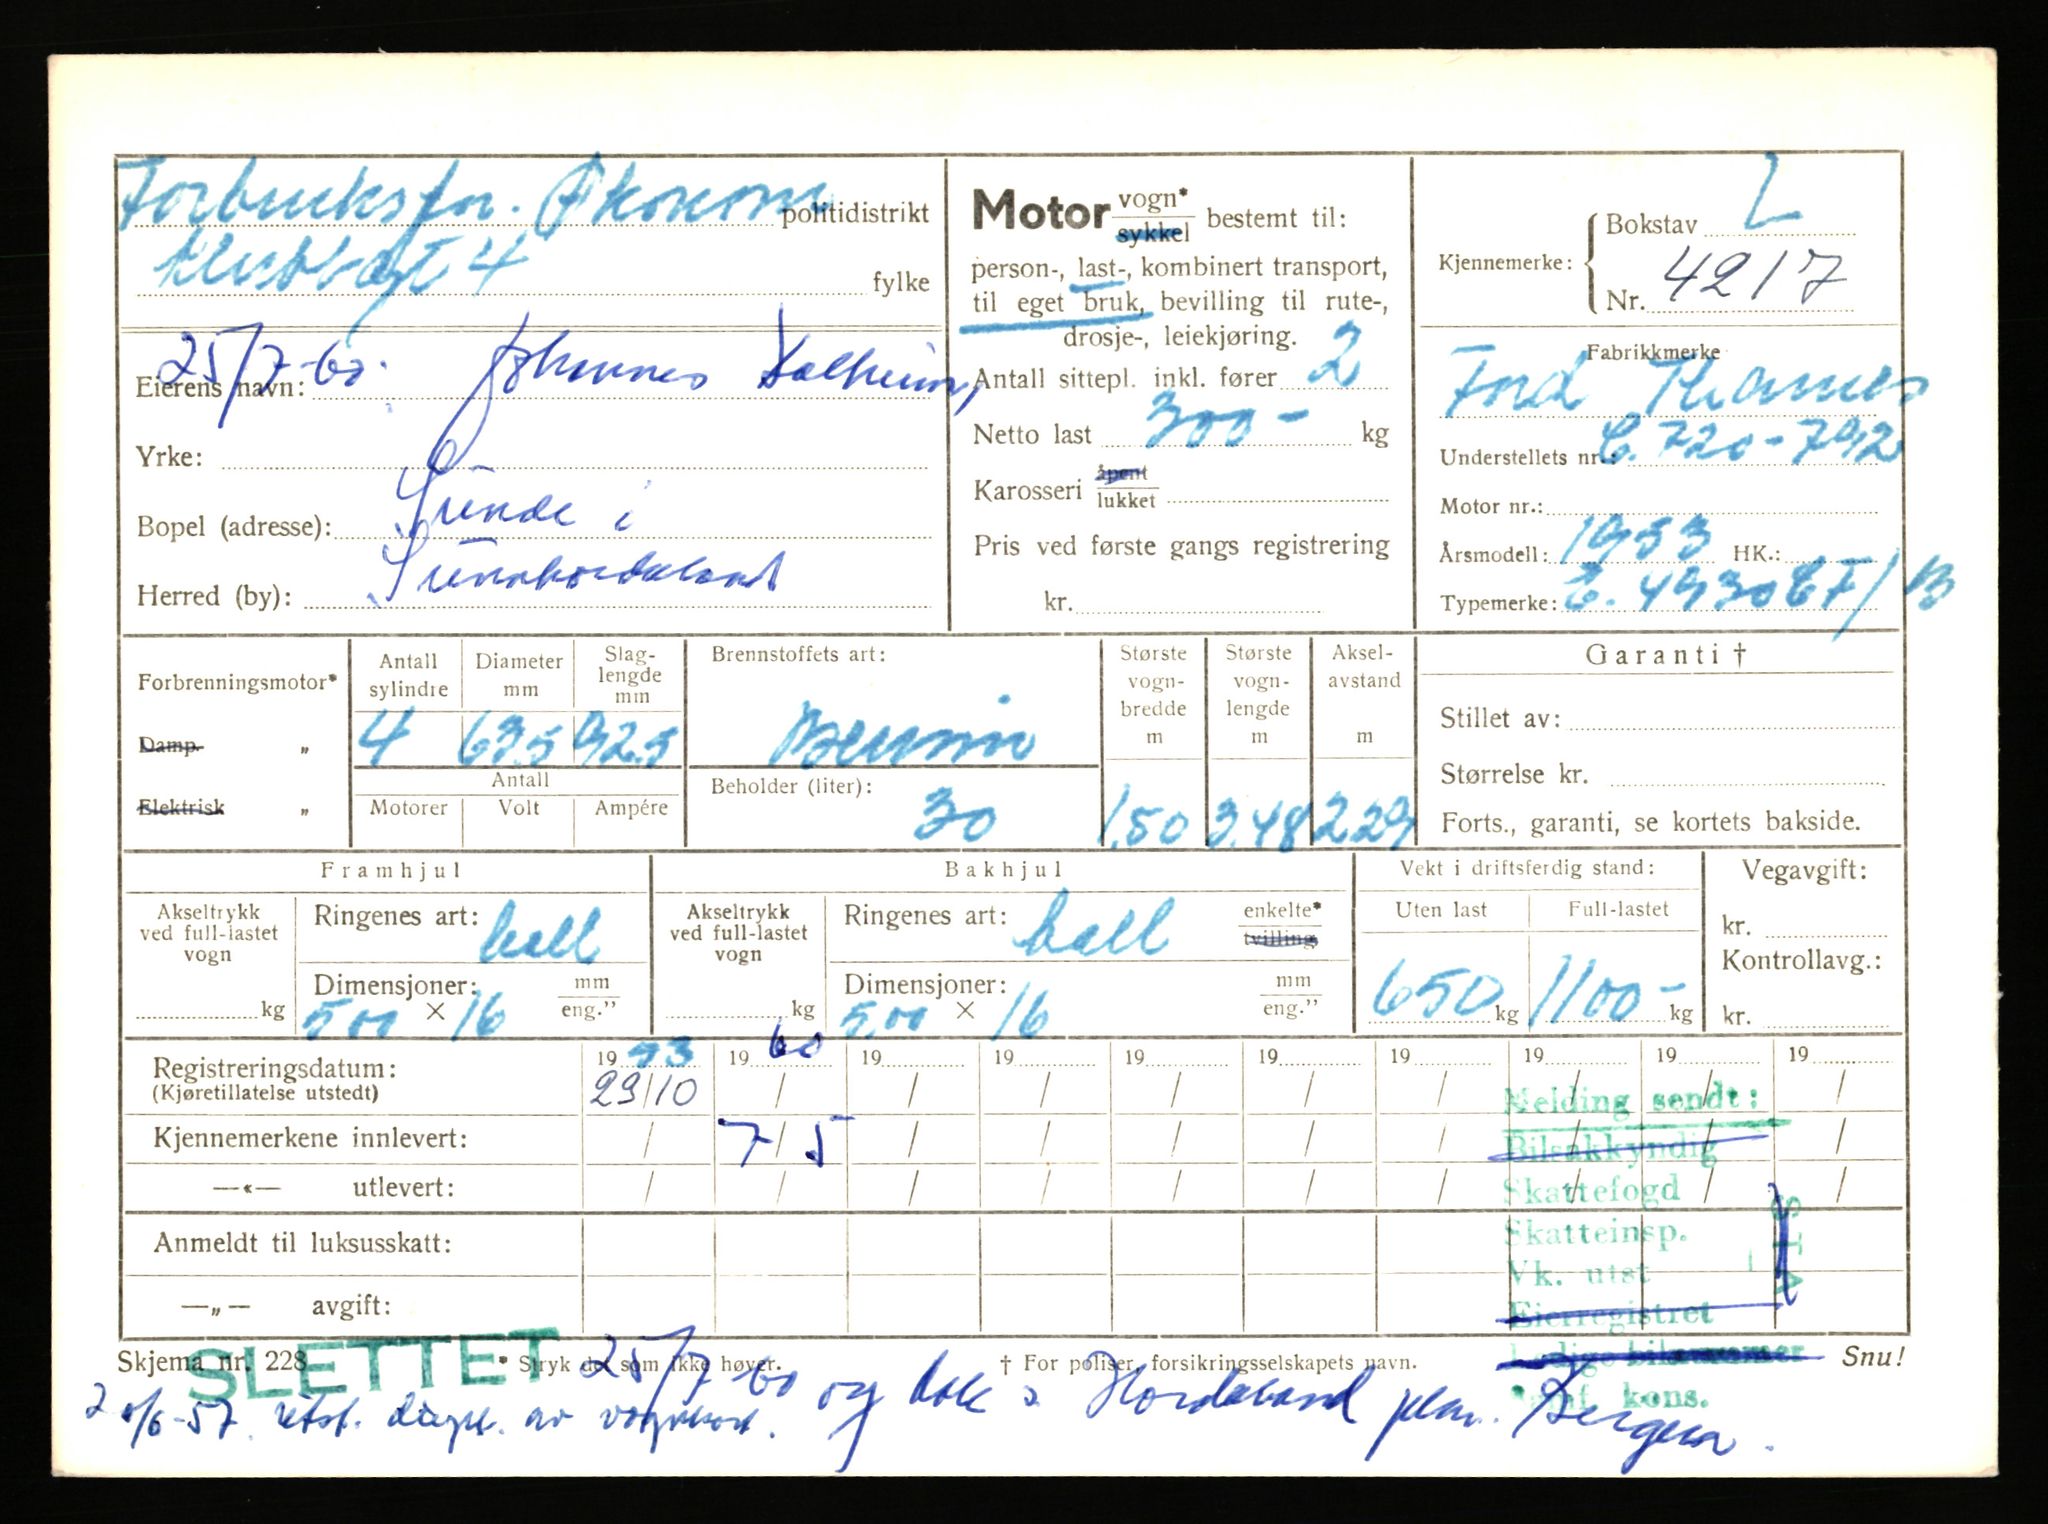 Forbruksfor. Økonom politidistrikt
gt 4 fylke
25/7-60. Johannes Valheim,
Eierens navn:
Yrke:
Bopel (adresse): Sunde i
Herred (by): Sunnhordaland
Motor vogn* sykkel bestemt til:
person-, last-, kombinert transport,
til eget bruk, bevilling til rute-,
drosje-, leiekjøring.
Antall sittepl. inkl. fører 2
Netto last 300 - kg
Karosseri åpent lukket
Pris ved første gangs registrering
kr.
Kjennemerke: Bokstav L
Nr. 4217
Fabrikkmerke
Ford Thames
Understellets nr.: C. 720-792
Motor nr.:
Årsmodell: 1953 HK.:
Typemerke: E. 4930 CF/B
Forbrenningsmotor*
Damp. „
Elektrisk „
Antall sylindre Diameter mm Slag-lengde mm
4 63.5 92.5
Antall
Motorer Volt Ampére
Brennstoffets art:
Bensin
Beholder (liter):
30
Største vogn-bredde m
1,50
Største vogn-lengde m
3.48
Aksel-avstand m
229
Garanti †
Stillet av:
Størrelse kr.
Forts., garanti, se kortets bakside.
Framhjul
Akseltrykk ved full-lastet vogn
kg
Ringenes art: ball
Dimensjoner: mm
5,00 × 16 eng.”
Bakhjul
Akseltrykk ved full-lastet vogn
kg
Ringenes art: ball enkelte* tvilling
Dimensjoner: mm
5,00 × 16 eng.”
Vekt i driftsferdig stand:
Uten last Full-lastet
650 kg 1100 - kg
Vegavgift:
kr.
Kontrollavg.:
kr.
Registreringsdatum: 19 53 19 60 19 19 19 19 19 19 19 19
(Kjøretillatelse utstedt) 29/10 / / / / / / / / /
Kjennemerkene innlevert: / 7/5 / / / / / / / /
—«— utlevert: / / / / / / / / / /
Anmeldt til luksusskatt:
—„— avgift:
Melding sendt:
Bilsakkyndig
Skattefogd
Skatteinsp.
Vk. utst
Eierregistret
Ledige bilnummer
kons.
Skjema nr. 228 * Stryk det som ikke høver. † For poliser, forsikringsselskapets navn. Snu!
SLETTET 25/7-60 og Hordaland Bergen.
20/6-57. utst. dupl. av vognkort.